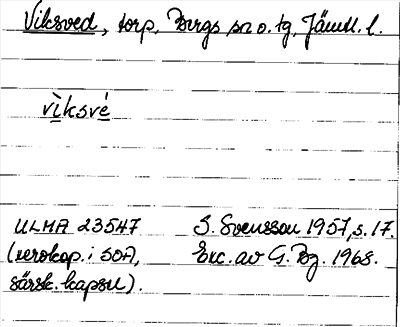 Viksved, torp, Bergs sn o. tg, Jämtl. l.
vìksvé
ULMA 23547 S. Svensson 1957, s. 17.
(xerokop. i SOA, Exc. av G. Bg. 1968.
särsk. kapsel).